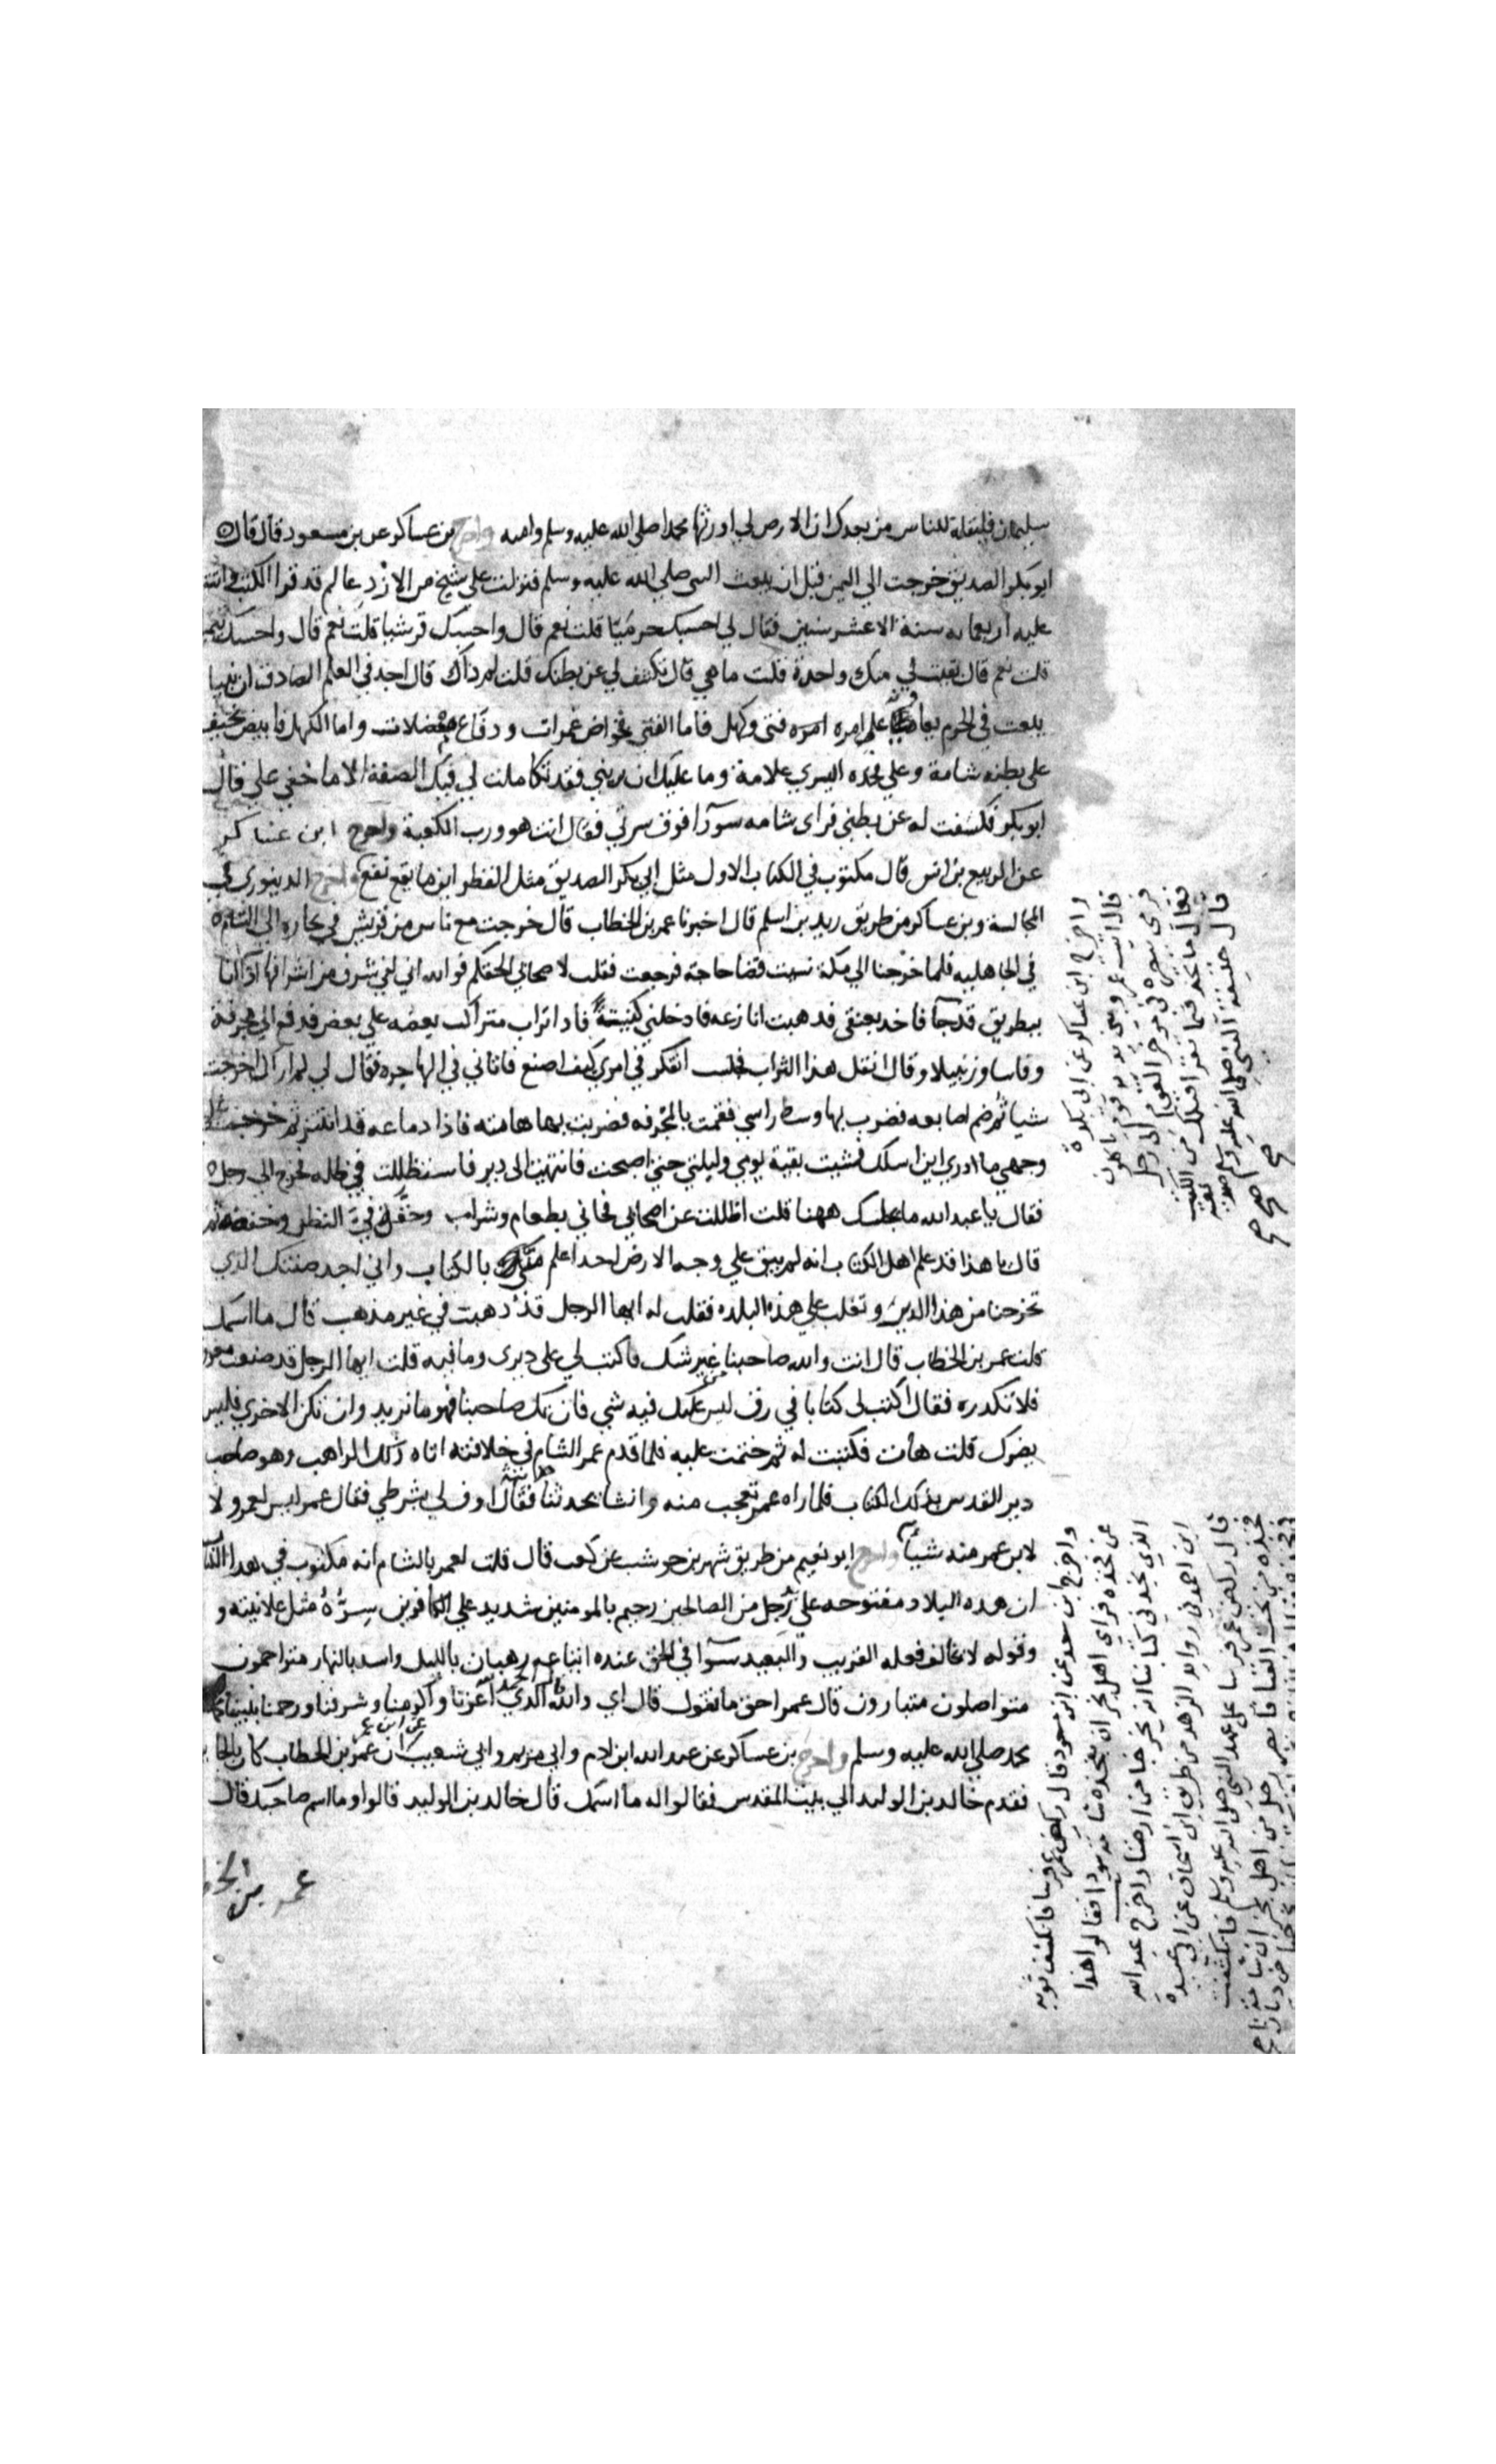 سليمان فليقله للناس من بعدك ان الارض لي اورثها محمدا صلي الله عليه وسلم وامته واخرج بن عساكر عن بن مسعود قال قال
ابو بكر الصديق خرجت الي اليمن قبل ان يبعث النبي صلي الله عليه وسلم فنزلت علي شيخ من الازد عالم قد قرا الكتب واتت
عليه اربعمايه سنة الا عشر سنين فقال لي احسبك حرميا قلت نعم قال واحسبك قرشيا قلت نعم قال واحسبك تيميا
قلت نعم قال بقيت لي منك واحدة قلت ما هي قال تكشف لي عن بطنك قلت لم ذاك قال اجد في العلم الصادق ان نبيا
يبعث في الحرم يعاون علي امره فتي وكهل فاما الفتي فخواض غمرات ودفاع معضلات واما الكهل فابيض نحيف
علي بطنه شامة وعلي فخذه اليسري علامة وما عليك ان تريني فقد تكاملت لي فيك الصفة الا ما خفي علي قال
ابو بكر فكشفت له عن بطني فراي شامه سودا فوق سرتي فقال انت هو ورب الكعبة واخرج ابن عساكر
عن الربيع بن انس قال مكتوب في الكتاب الاول مثل ابي بكر الصديق مثل القطر اينما يقع نفع واخرج الدينوري في
المجالسة وبن عساكر من طريق زيد بن اسلم قال اخبرنا عمر بن الخطاب قال خرجت مع ناس من قريش في تجاره الي الشام
في الجاهليه فلما خرجنا الي مكة نسيت قضا حاجة فرجعت فقلت لاصحابي الحقكم فوالله اني لفي شرف من اشرافها اذ انا
ببطريق قد جا فاخد بعنقي فدهبت انازعه فادخلني كنيسة فادا تراب متراكب بعضه علي بعض فدفع الي مجرفة
وفاسا وزنبيلا وقال انقل هذا التراب فجلست اتفكر في امري كيف اصنع فاتاني في الهاجره فقال لي لم ارك اخرجت
شيا ثم ضم اصابعه فضرب بها وسط راسي فقمت بالمجرفه فضربت بها هامته فاذا دماغه قد انتثر ثم خرجت علي
وجهي ما ادري اين اسلك فمشيت بقية يومي وليلتي حتي اصبحت فانتهيت الي دير فاستظللت في ظله فخرج الي رجل
فقال يا عبد الله ما يجلسك ههنا قلت اظللت عن اصحابي فجاني بطعام وشراب وصعد في النظر وخفضه ثم
قال يا هذا قد علم اهل الكتاب انه لم يبق علي وجه الارض احد اعلم مني بالكتاب واني اجد صفتك الذي
تخرجنا من هذا الدير وتغلب علي هذه البلده فقلت له ايها الرجل قد ذهبت في غير مذهب قال ما اسمك
قلت عمر بن الخطاب قال انت والله صاحبنا من غير شك فاكتب لي علي ديري وما فيه قلت ايها الرجل قد صنعت معروفا
فلا تكدره فقال اكتب لي كتابا في رق ليس عليك فيه شي فان تك صاحبنا فهو ما نريد وان تكن الاخري فليس
يضرك قلت هات فكتبت له ثم ختمت عليه فلما قدم عمر الشام في خلافته اتاه ذلك الراهب وهو صاحب
دير القدس بذلك الكتاب فلما راه عمر تعجب منه وانشا يحدثنا حديثه فقال اوف لي بشرطي فقال عمر ليس لعمر ولا
لابن عمر منه شيا واخرج ابو نعيم من طريق شهر بن حوشب عن كعب قال قلت لعمر بالشام انه مكتوب في هذا الكتاب
ان هده البلاد مفتوحه علي رجل من الصالحين رحيم بالمومنين شديد علي الكافرين سره مثل علانيته و
وقوله لا يخالف فعله القريب والبعيد سوا في الحق عنده اتباعه رهبان بالليل واسد بالنهار متراحمون
متواصلون متبارون قال عمر احق ما تقول قال اي والله قال الحمد لله الذي اعزنا واكرمنا وشرفنا ورحمنا بنبينا
محمد صلي الله عليه وسلم واخرج بن عساكر عن عبد الله ابن ادم وابي مريم وابي شعيب ان عمر بن الخطاب كان بالجابية
فقدم خالد بن الوليد الي بيت المقدس فقالوا له ما اسمك قال خالد بن الوليد قالوا وما اسم صاحبك قال
عمر بن الخطاب
واخرج ابن عساكر عن ابي بكرة
قال اتيت عمر وبين يديه قوم ياكلون
فرمي ببصره في موخر القوم الي رجل
فقال ما تجد فيما تقرا قبلك من الكتب
قال خليفة النبي صلي الله عليه وسلم صديقه
صح صح
واخرج ابن سعد عن ابن مسعود قال ركض عمر فرسا فانكشف ثوبه
عن فخذه فراي اهل نجران بفخذه شامة سودا فقالوا هذا
الذي نجد في كتابنا انه يخرجنا من ارضنا واخرج عبد الله
ابن احمد في زوايد الزهد من طريق ابي اسحاق عن ابي عبيدة
قال ركض عمر فرسا علي عهد النبي صلي الله عليه وسلم فانكشفت
فخذه من تحت القبا فابصر رجل من اهل نجران شامة